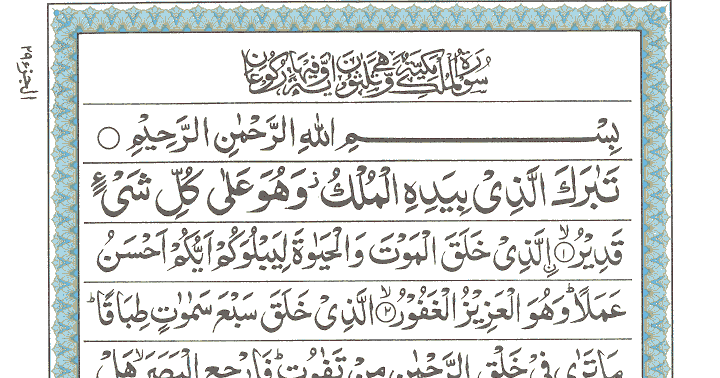 الجزء ٢٩
سورة الملك مكية وهي ثلثون اية وفيها ركوعان
بِسْمِ اللهِ الرَّحْمٰنِ الرَّحِيْمِ ○
تَبٰرَكَ الَّذِىْ بِيَدِهِ الْمُلْكُ ز وَهُوَ عَلٰى كُلِّ شَىْءٍ
قَدِيْرُ ۙ﴿۱﴾ اۨلَّذِىْ خَلَقَ الْمَوْتَ وَالْحَيٰوةَ لِيَبْلُوَكُمْ اَيُّكُمْ اَحْسَنُ
عَمَلًا ؕ وَهُوَ الْعَزِيْزُ الْغَفُوْرُ ۙ﴿۲﴾ الَّذِىْ خَلَقَ سَبْعَ سَمٰوٰتٍ طِبَاقًا ؕ
مَا تَرٰى فِىْ خَلْقِ الرَّحْمٰنِ مِنْ تَفٰوُتٍ ؕ فَارْجِعِ الْبَصَرَ ۙ هَلْ